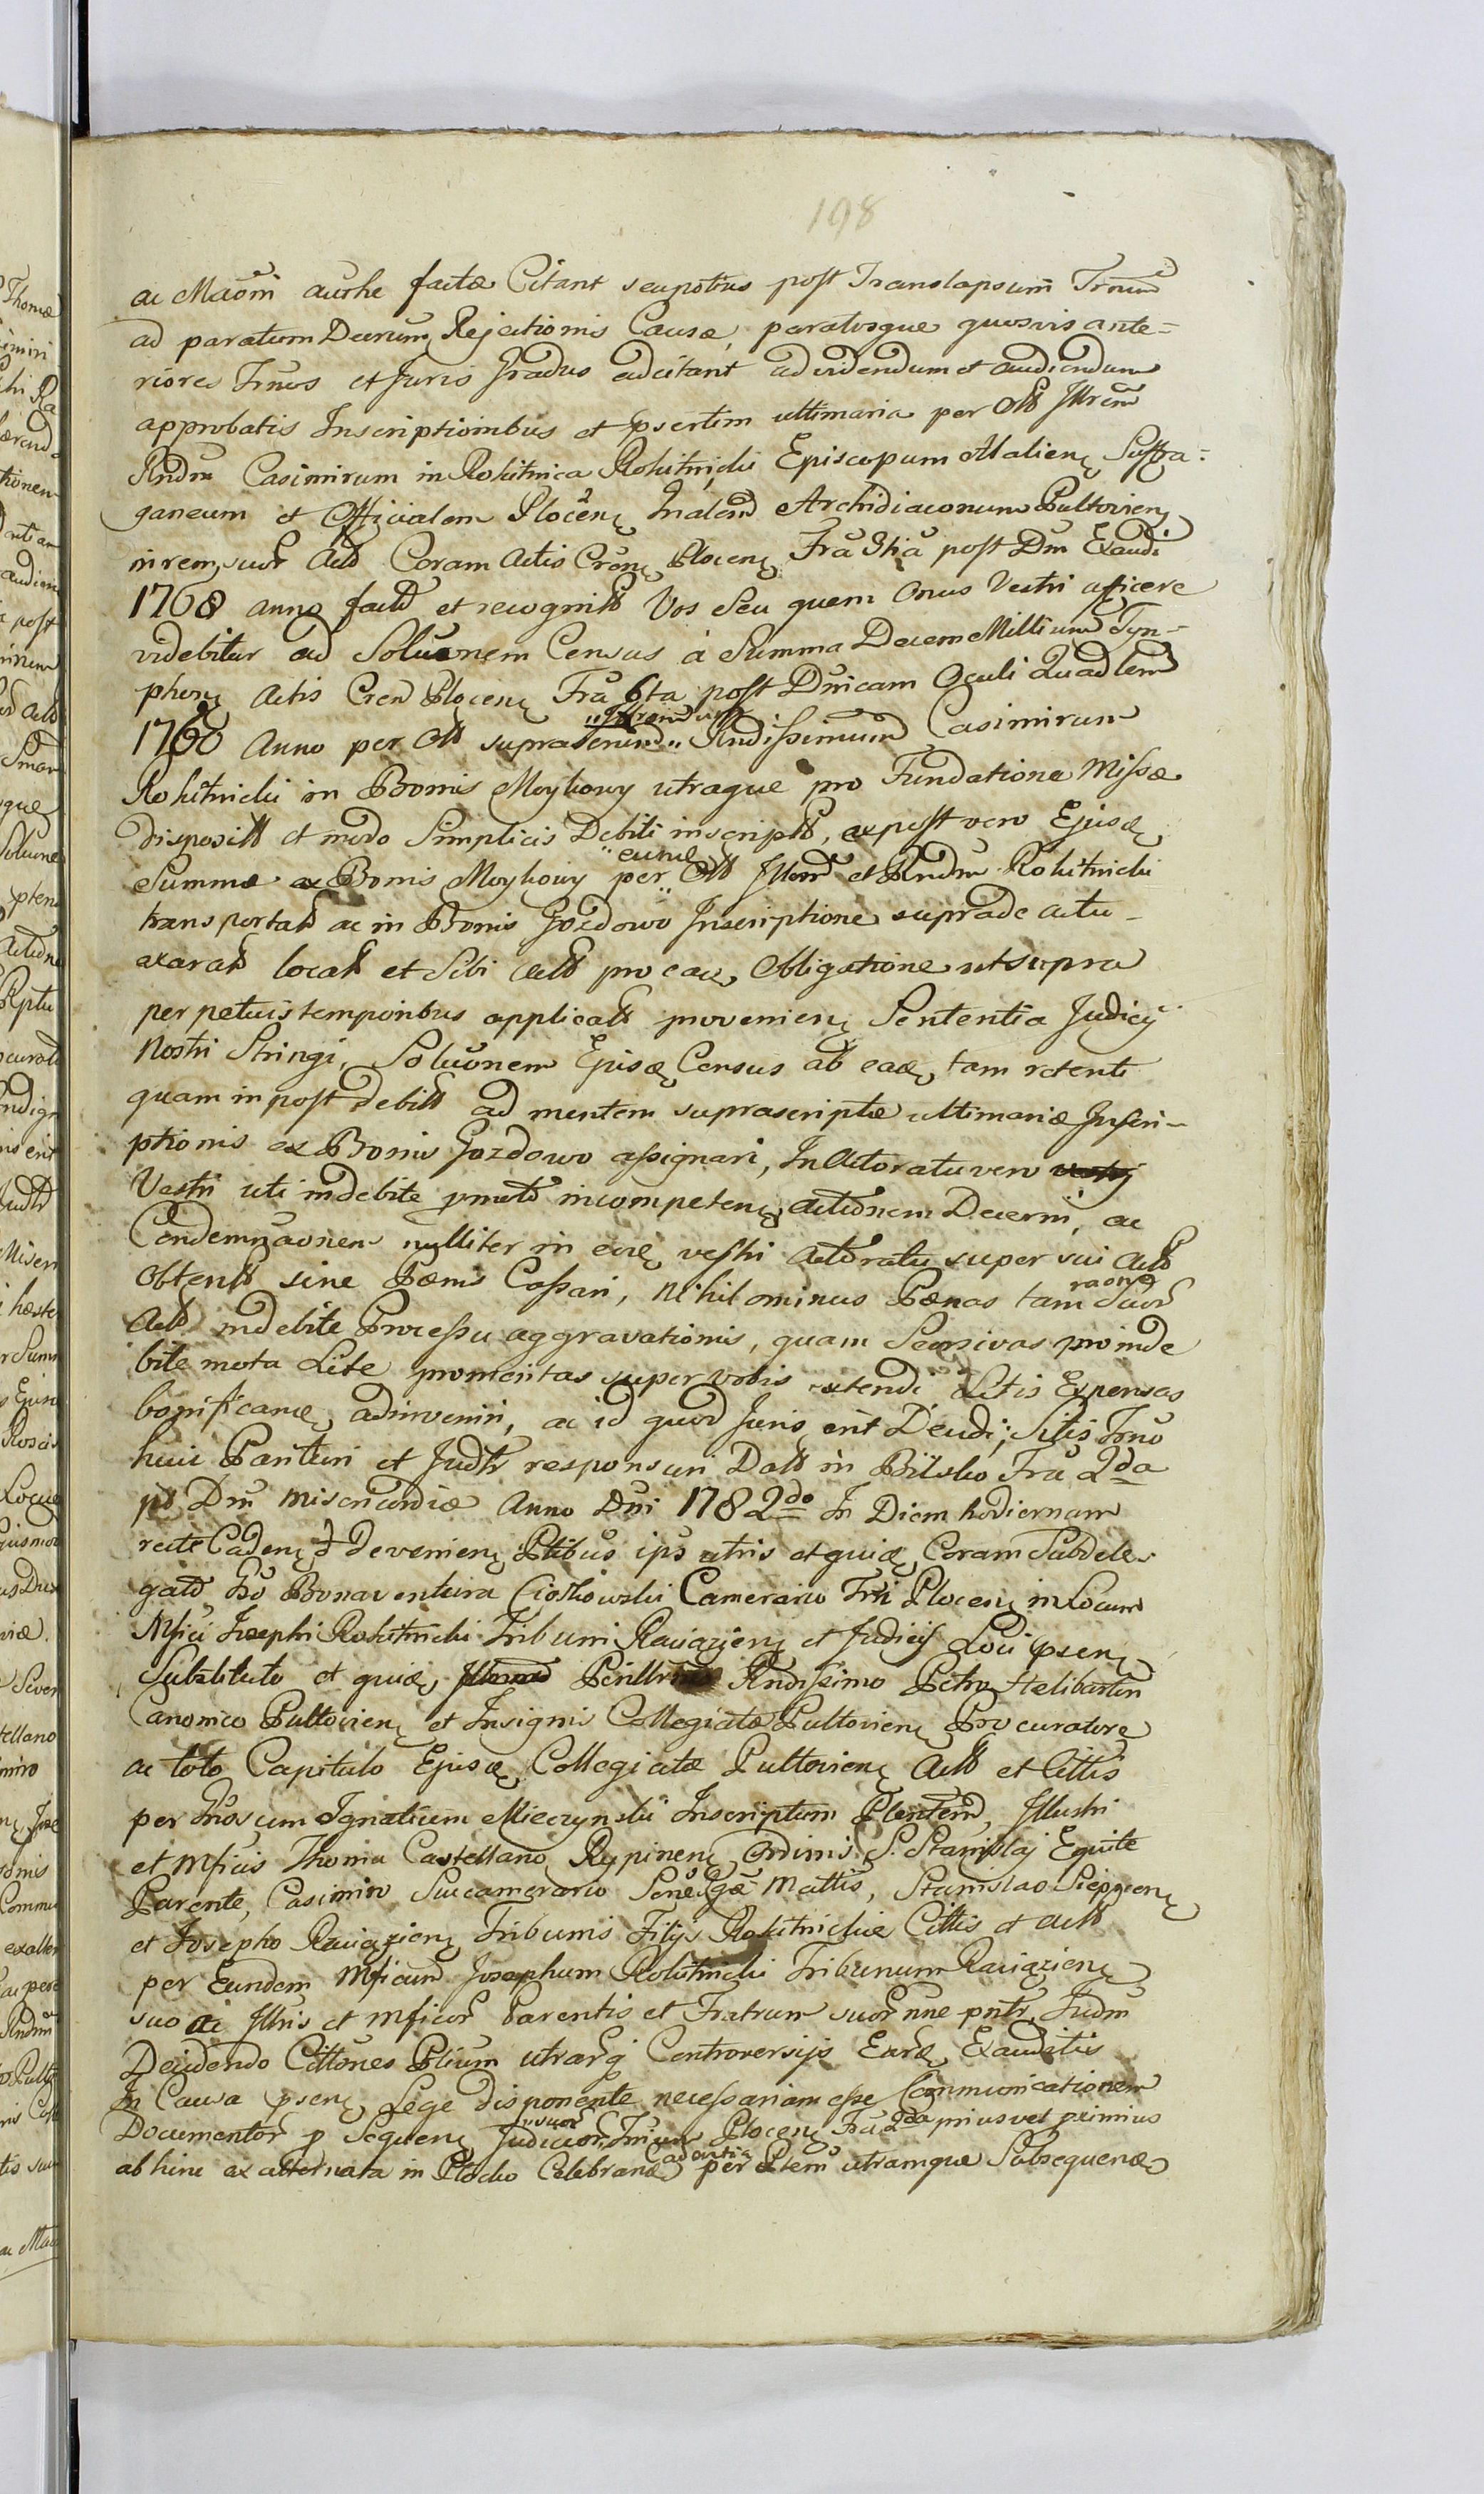 198
ac Maõm authe factæ Citant seupotius post Translapsum Trnum
ad paratum Decrum Rejectionis Causæ, paratosque quosvis ante=
riores Trnos et Juris Gradus adcitant ad videndum et audiendum
approbatis Inscriptionibus et psertim ultimaria per olb Illrem
Rndm Casimirum in Rokitnica Rokitnicki Episcopum Malien Suffra=
ganeum et Officialem Plocen Archidiaconum Pultovien
in rem suor Actt Coram Actis Cren Plocen Fra 3tia post Dm Exaudi
1768 anno factt et recognitt Vos Seu quem onus Vestri afficere
videbitur ad Soluonem Census à Summa Decem Millium Tyn-
phor Actis Cren Plocen Fra 6ta post Dnicam Oculi Quadlem
1760 Anno per olb supra Rndissimum Casimirum
Rokitnicki in Bonis Moykowy utraque pro Fundatione Missæ
disposilt et modo Simplicis Debiti inscriptt, expost vero Ejusd
"eund
Summæ ex Bonis Moykowy per olb Illrem et Rndm Rokitnicki
transportatt ac in Bonis Gozdowo Inscriptione suprade actu-
axaratt locatt et Sibi Actt pro ead Obligatione ut supra
perpetuis temporibus applicatt provenien Sententia Judicij
Nostri Stringi, Soluonem Ejusd Census ab ead tam retenti
quam in post debitt ad mentem suprascriptæ ultimariæ Inscri-
ptionis ex Bonis Gozdowo assignari, In Actoratu vero
Vestri uti indebite pmoto incompeten actionem Decerni, ac
Condemnaonem nulliter in eod vestri actoratu super sui Actt
obtentt sine Pænis Cassari, Nihilominus Pænas tam
raone
Suor
Actt indebite Processu aggravationis, quam Seorsivas pro inde
bite mota Lite promeritas super vobis extendi Litis Expensas
bonificand adinveniri, ac id quod Juris erit Decidi; Sitis Trno
huic Parituri et Judtr responsuri Datt in Bilsko Fra 2da
pt Dm Misericordiæ Anno Dni 1782do In Diem hodiernam
recte Caden et Devenien Ptibus ips utris et quid Coram Subdele-
gato Gso Bonaventura Ciotkowski Camerario Tri Plocen in Locum
Mfici Josephi Rokitnicki Tribuni Raciązien et Judicis Loci psen
Substituto et quid Perillri Rndissimo Petro Helibartin
Canonico Pultovien et Insignis Collegiatæ Pultovien Procuratore
ac toto Capitulo Ejusd Collegiatæ Pultovien Actt et Cittis
per Gnosum Ignatium Mieczynski Inscriptum Plentem, Illustri
et Mficis Thoma Castellano Rypinen Ordinis S. Stanislaj Equite
Parente, Casimiro Succamerario Mattis, Stanislao Sieprcen
et Josepho Raciązien Tribunis Filijs Rokitnickie Cittis et actt
per Eundem Mficum Josephum Rokitnicki Tribunum Raciązien
suo ac Illris et Mficor Parentis et Fratrum suor nne pntr, Judm
Decidendo Cittones Ptium utrarq Controversijs Eard Exauditis
In Causa psen Lege disponente necessariam esse Communicationem
"suor
Documentor p Sequen Judicior Trium Plocen Fra 2da prius vel primius
Cadentia
abhinc ex alternata in Plocko Celebrand per Ptem utramque Subsequend